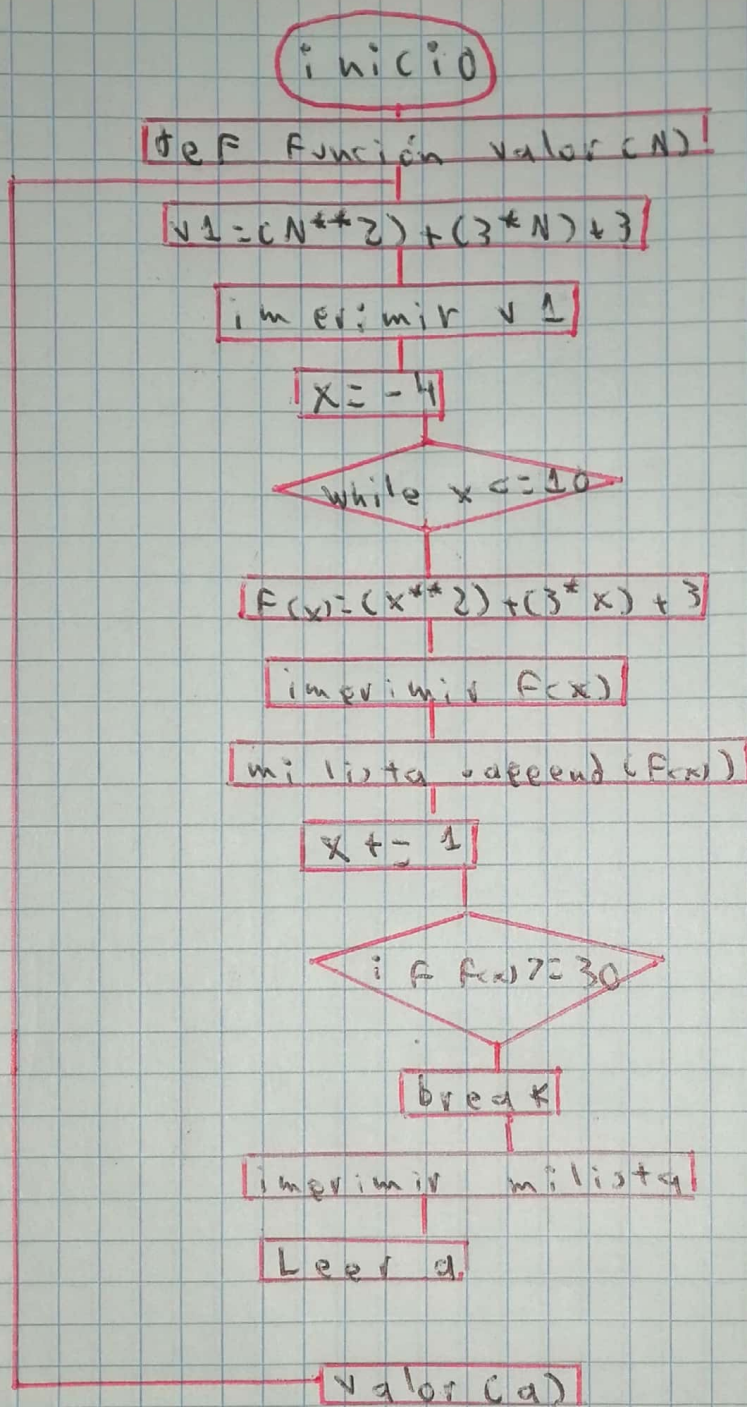 inicio
def Función valor(N)
v1=(N**2)+(3*N)+3
imprimir v1
x=-4
while x<=10
F(x)=(x**2)+(3*x)+3
imprimir F(x)
milista.append(F(x))
x+=1
iF F(x)>=30
break
imprimir milista
Leer a
valor(a)